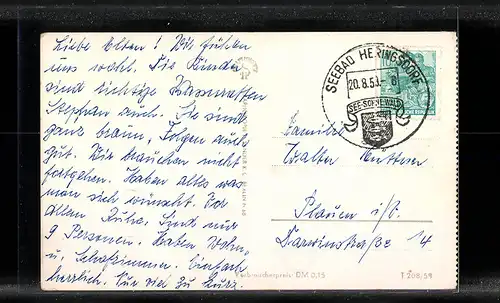 Liebe Eltern! Wir fühlen
uns wohl. Die Kinder
sind richtige Wasserratten
Stephan auch. Sie sind
ganz braun, folgen auch
gut. Wir brauchen nicht
fortgehen. Haben alles was
man sich wünscht. Vor
allem Ruhe. Sind nur
9 Personen. Haben Wohn-
u. Schlafzimmer. Einfach
herrlich. Nur viel zu kurz.
SEEBAD HERINGSDORF
20.8.59
SEE-SONNE-WALD
Familie
Walter
Plauen i/V.
Darwinstraße 14
Verbraucherpreis DM 0,15
T 208/59